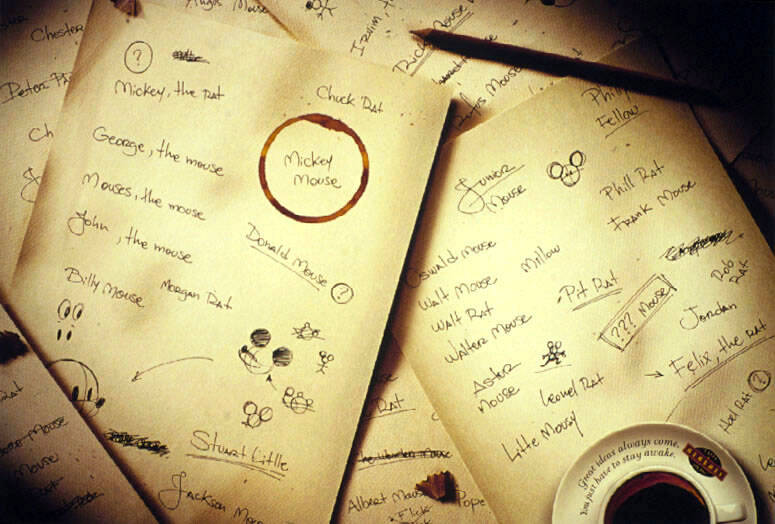 Angus Mouse
Chester
Peter
Ch
?
Mickey, the RAT
Chuck RAT
George, the mouse
Mickey
Mouse
Mouses, the mouse
John, the mouse
Donald Mouse ?
Billy Mouse
Morgan RAT
Stuart Little
Jackson Mouse
Mouse
Mouse
Rick Mouse
Rufus Mouse
RAT
The Wooden Mouse
Albert Mouse
Flick
Pope
Phill
Fellow
Junior
Mouse
Phill RAT
Frank Mouse
Oswald Mouse
Millow
Walt Mouse
Pit RAT
Rob
RAT
Walt RAT
??? Mouse
Jordan
Walter Mouse
Felix, the RAT
Aster
Mouse
Leonel RAT
?
Little Mousy
Great ideas always come.
You just have to stay awake.